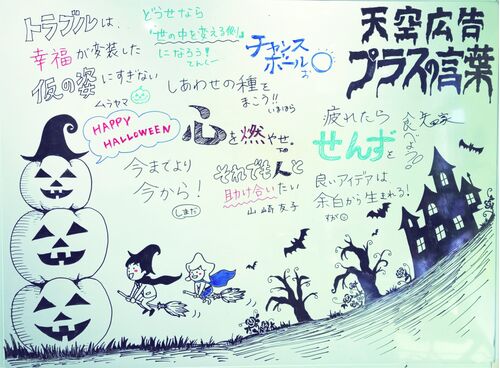 天空広告
プラスの言葉
トラブルは、
幸福が変装した
仮の姿にすぎない
ムラヤマ
どうせなら
「世の中を変える側」
になろう！
てんくー
チャンス
ボール
しあわせの種を
まこう!!
いまはら
HAPPY
HALLOWEEN
心を燃やせ。
今まてより
今から！
しまだ
それでも人と
助け合いたい
山崎友子
疲れたら
せんずを
食べよう
良いアイデアは
余白から生まれる！